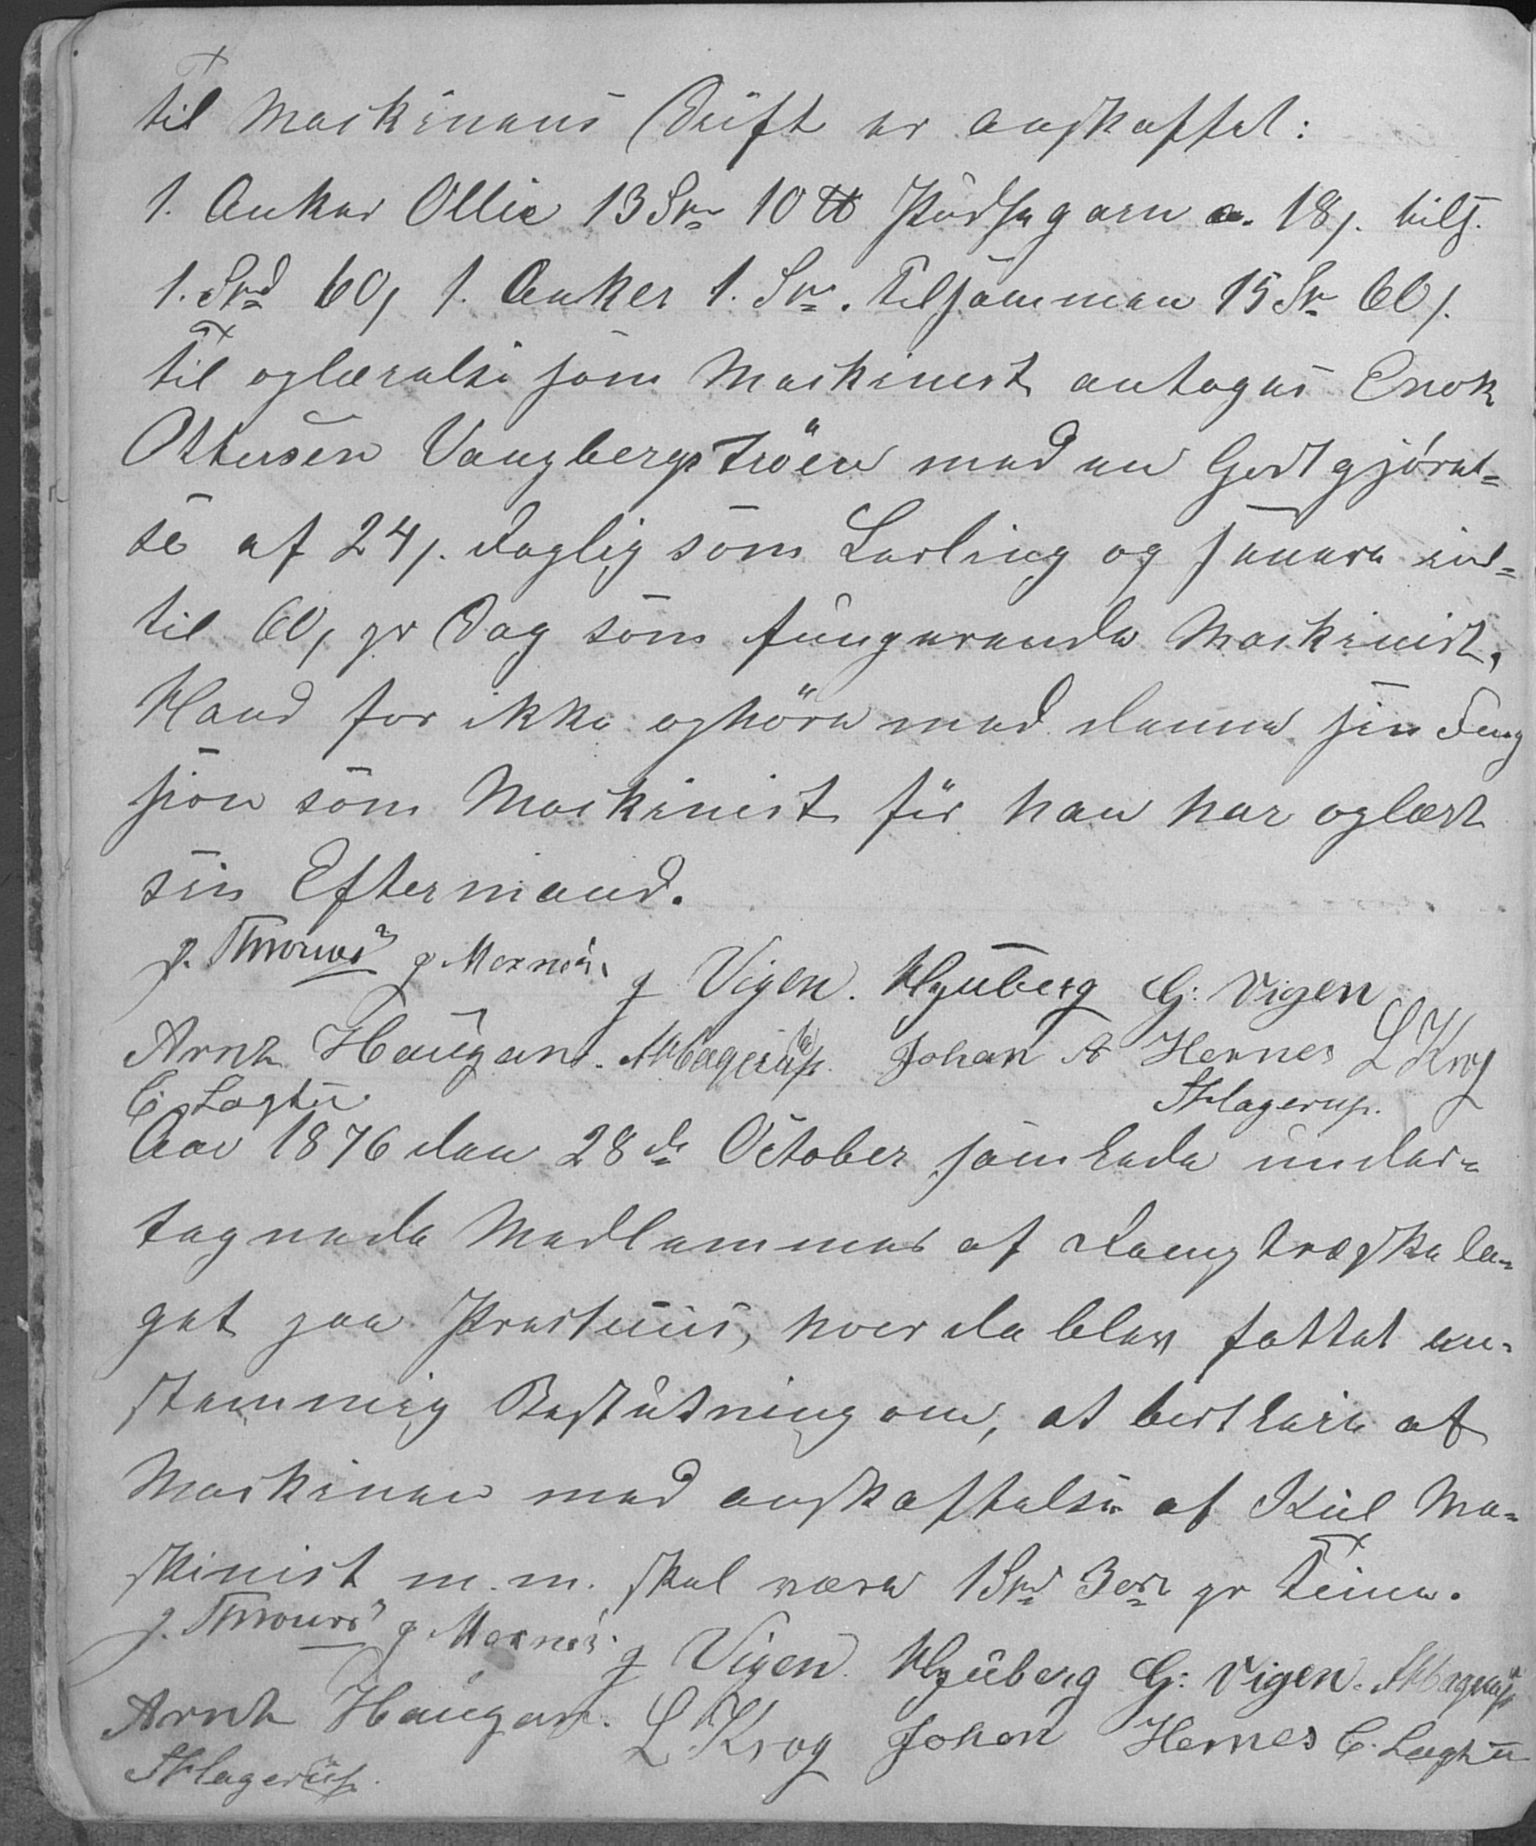 Til Maskinens Drift er anskaffet:
1. Anker Ollie 13 Skr 10 ℔ Pudsegarn a. 18 s. tils.
1. Spd 60 s 1. Anker 1. Skr. Tilsammen 15 Skr 60 s.
Til oplærelse som Maskinist antoges Enok
Ottersen Vangbergstrøen med en Godtgjørel=
se af 24 s. daglig som Lærling og senere ind=
til 60 s pr Dag som fungerende Maskinist.
Hand for ikke ophöre med denne sin Fung
sion som Maskinist för han har oplært
sin Eftermand.
J. Marnes J Vigen. Hjuberg G: Vigen
Arnt Haugan. Johan A Hernes L Krog
Aar 1876 den 28de October samlede under=
tegnede Medlemmer af Damptræskela=
get paa Præstuus, hvor da blev fattet en=
stemmig Beslutning om, at bortleie af
Maskinen med anskaffelse af Kul Ma=
skinist m.m. skal være 1 Spd 3 ort pr Time.
J. Marnes. J Vigen. Hjuberg G: Vigen.
Arnt Haugan. L Krog Johan Hernes